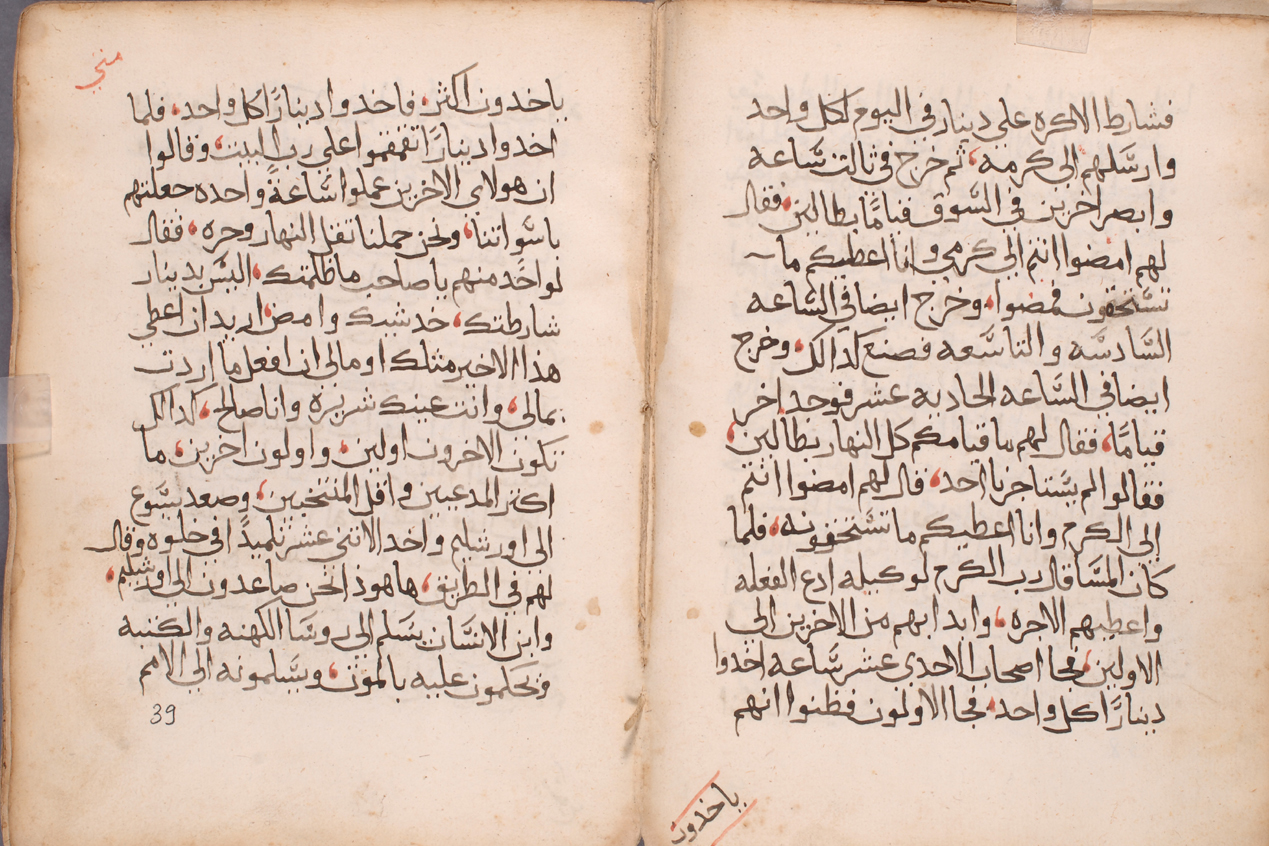 فشارط الاكره علي دينار في اليوم لكل واحد
وارسلهم الي كرمه، ثم خرج في ثالت ساعه
وابصر اخرين في السوق قيامًا بطالين، فقال
لهم امضوا انتم الي كرمي وانا اعطيكم ما
تستحقون فمضوا، وخرج ايضا في الساعه
السادسه والتاسعه فصنع كدالك، وخرج
ايضا في الساعه الحاديه عشر فوجد اخر
قيامًا، فقال لهم ما قيامكم كل النهار بطالين،
فقالوا لم يستاجرنا احد، قال لهم امضوا انتم
الي الكرم وانا اعطيكم ما تستحقونه، فلما
كان المسا قال رب الكرم لوكيله ادع الفعله
واعطيهم الاجره، وابدا بهم من الاخرين الي
الاولين، فجا اصحاب الاحدى عشر ساعه اخدوا
دينارًا كل واحد، فجا الاولون فظنوا انهم
ياخدون
متي
ياخدون اكثر، فاخدوا دينارًا كل واحد، فلما
اخدوا دينارًا تقمقموا علي رب البيت، وقالوا
ان هولاى الاخرين عملوا ساعةً واحده جعلتهم
باسواتنا، ونحن حملنا تقل النهار وحره، فقال
لواحد منهم يا صاحب ما ظلمتك، اليس بدينار
شارطتك، خد شيك وامض اريد ان اعطي
هذا الاخير مثلك او ما لي ان افعل ما اردت
بمالي، وانت عينك شريره وانا صالح، كدالك
تكون الاخرون اولين، واولون اخرين، ما
اكتر المدعيين واقل المنتخبين، وصعد يسوع
الي اورشليم واخد الاتني عشر تلميدًا في خلوه وقال
لهم في الطريق، ها هوذا نحن صاعدون الي اورشليم،
وابن الانسان يسلم الي روسا الكهنه والكتبه
فيحكمون عليه بالموت، ويسلمونه الي الامم
39